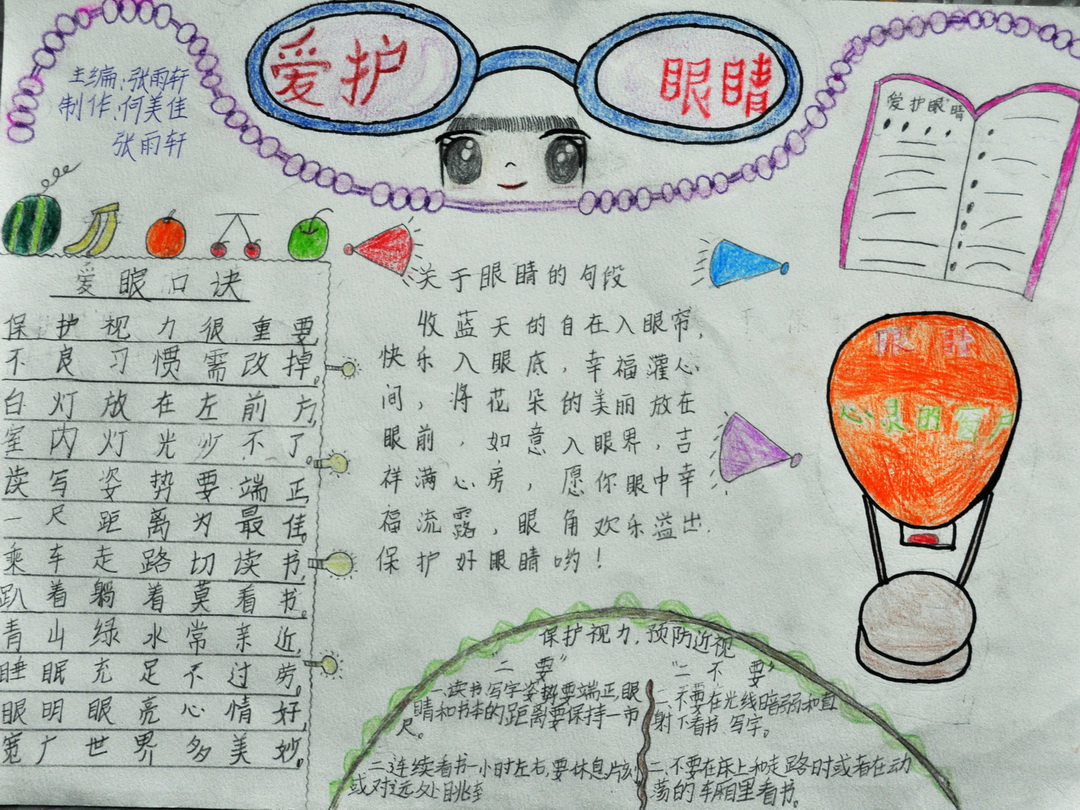 爱护
眼睛
主编:张雨轩
制作:何美佳
张雨轩
爱护眼睛
爱眼口诀
保护视力很重要,
不良习惯需改掉。
台灯放在左前方,
室内灯光少不了。
读写姿势要端正,
一尺距离为最佳。
乘车走路切读书,
趴着躺着莫看书。
青山绿水常亲近,
睡眠充足不过劳。
眼明眼亮心情好,
宽广世界多美妙。
关于眼睛的句段
收蓝天的自在入眼帘,
快乐入眼底,幸福灌心
间,将花朵的美丽放在
眼前,如意入眼界,吉
祥满心房,愿你眼中幸
福流露,眼角欢乐溢出.
保护好眼睛哟!
眼睛
心灵的窗户
保护视力,预防近视
“二要”
一.读书、写字姿势要端正,眼
睛和书本的距离要保持一市
尺。
二.连续看书一小时左右,要休息片刻
或对远处眺
“二不要”
一、不要在光线暗弱和直
射下看书、写字。
二、不要在床上和走路时或者在动
荡的车厢里看书。